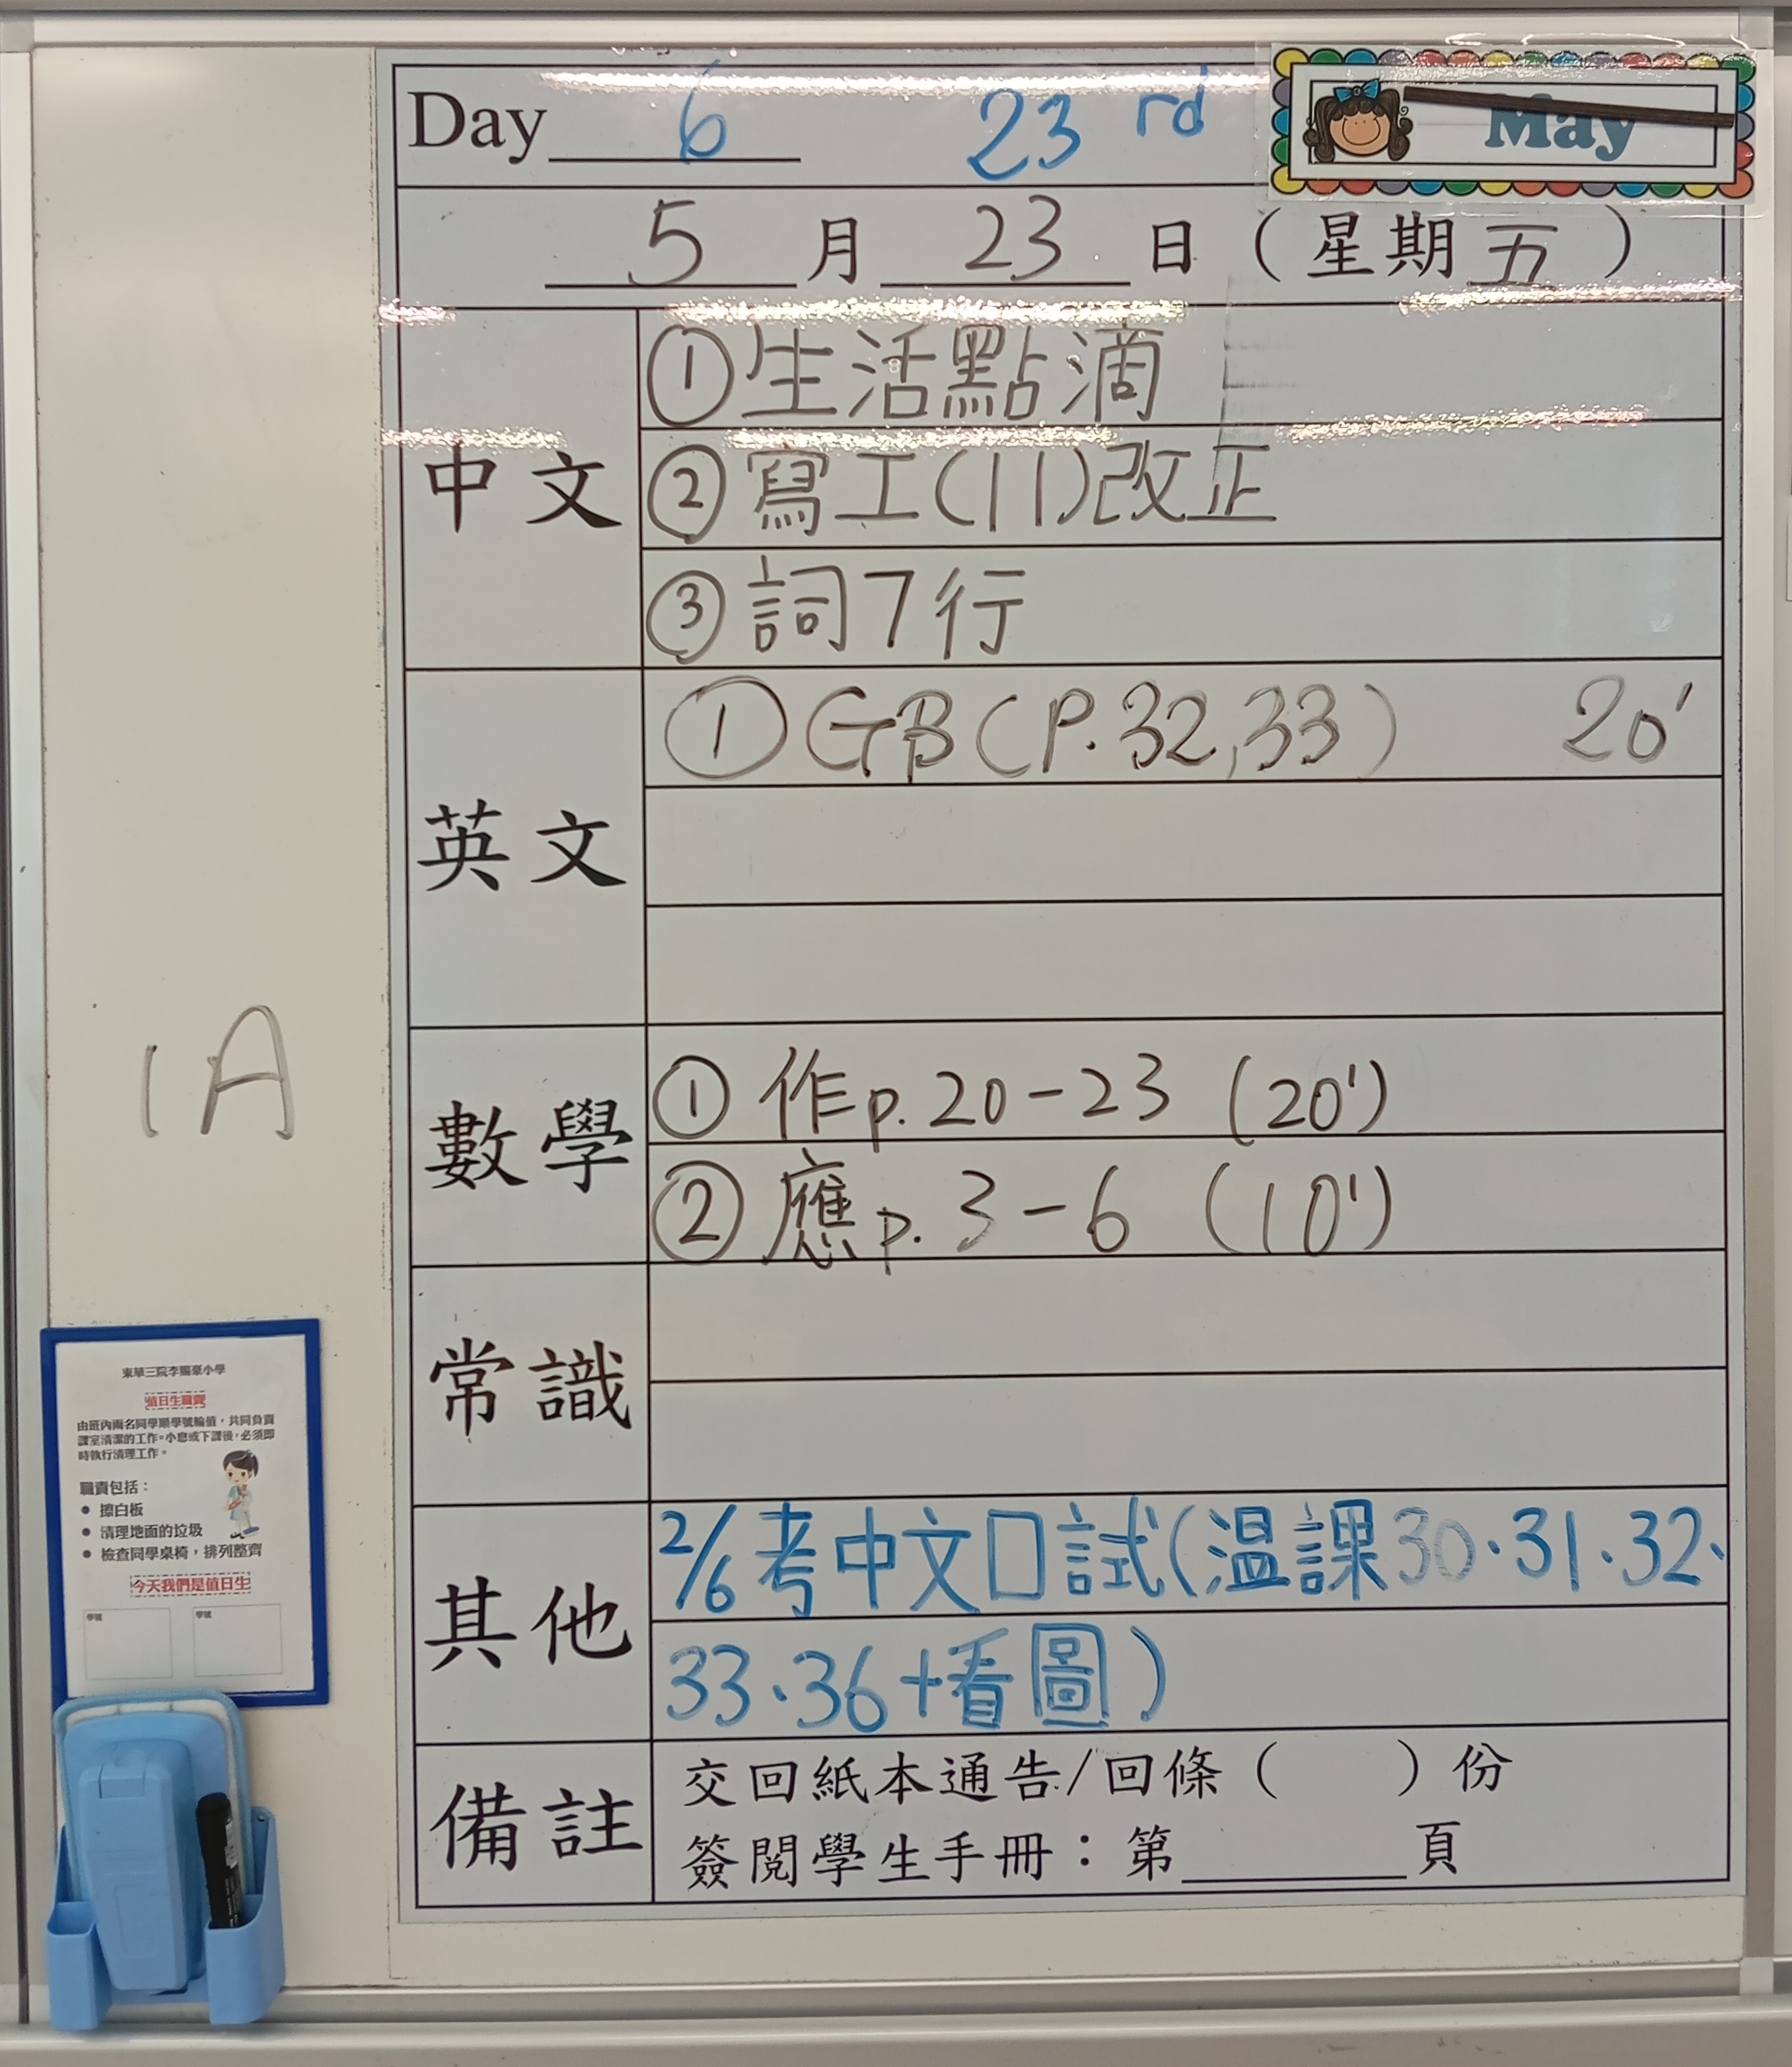 Day 6 23 rd May
5 月 23 日 (星期五)
中文
①生活點滴
②寫工(11)改正
③詞7行
英文
①GB(P.32,33) 20'
數學
① 作p.20-23 (20')
② 應p.3-6 (10')
常識
其他
2/6考中文口試(温課30·31·32·
33·36+看圖)
備註
交回紙本通告/回條( )份
簽閱學生手冊:第______頁
1A
東華三院李賜豪小學
值日生職責
由班內兩名同學順學號輪值,共同負責
課室清潔的工作。小息或下課後,必須即
時執行清理工作。
職責包括:
● 擦白板
● 清理地面的垃圾
● 檢查同學桌椅,排列整齊
今天我們是值日生
學號 學號